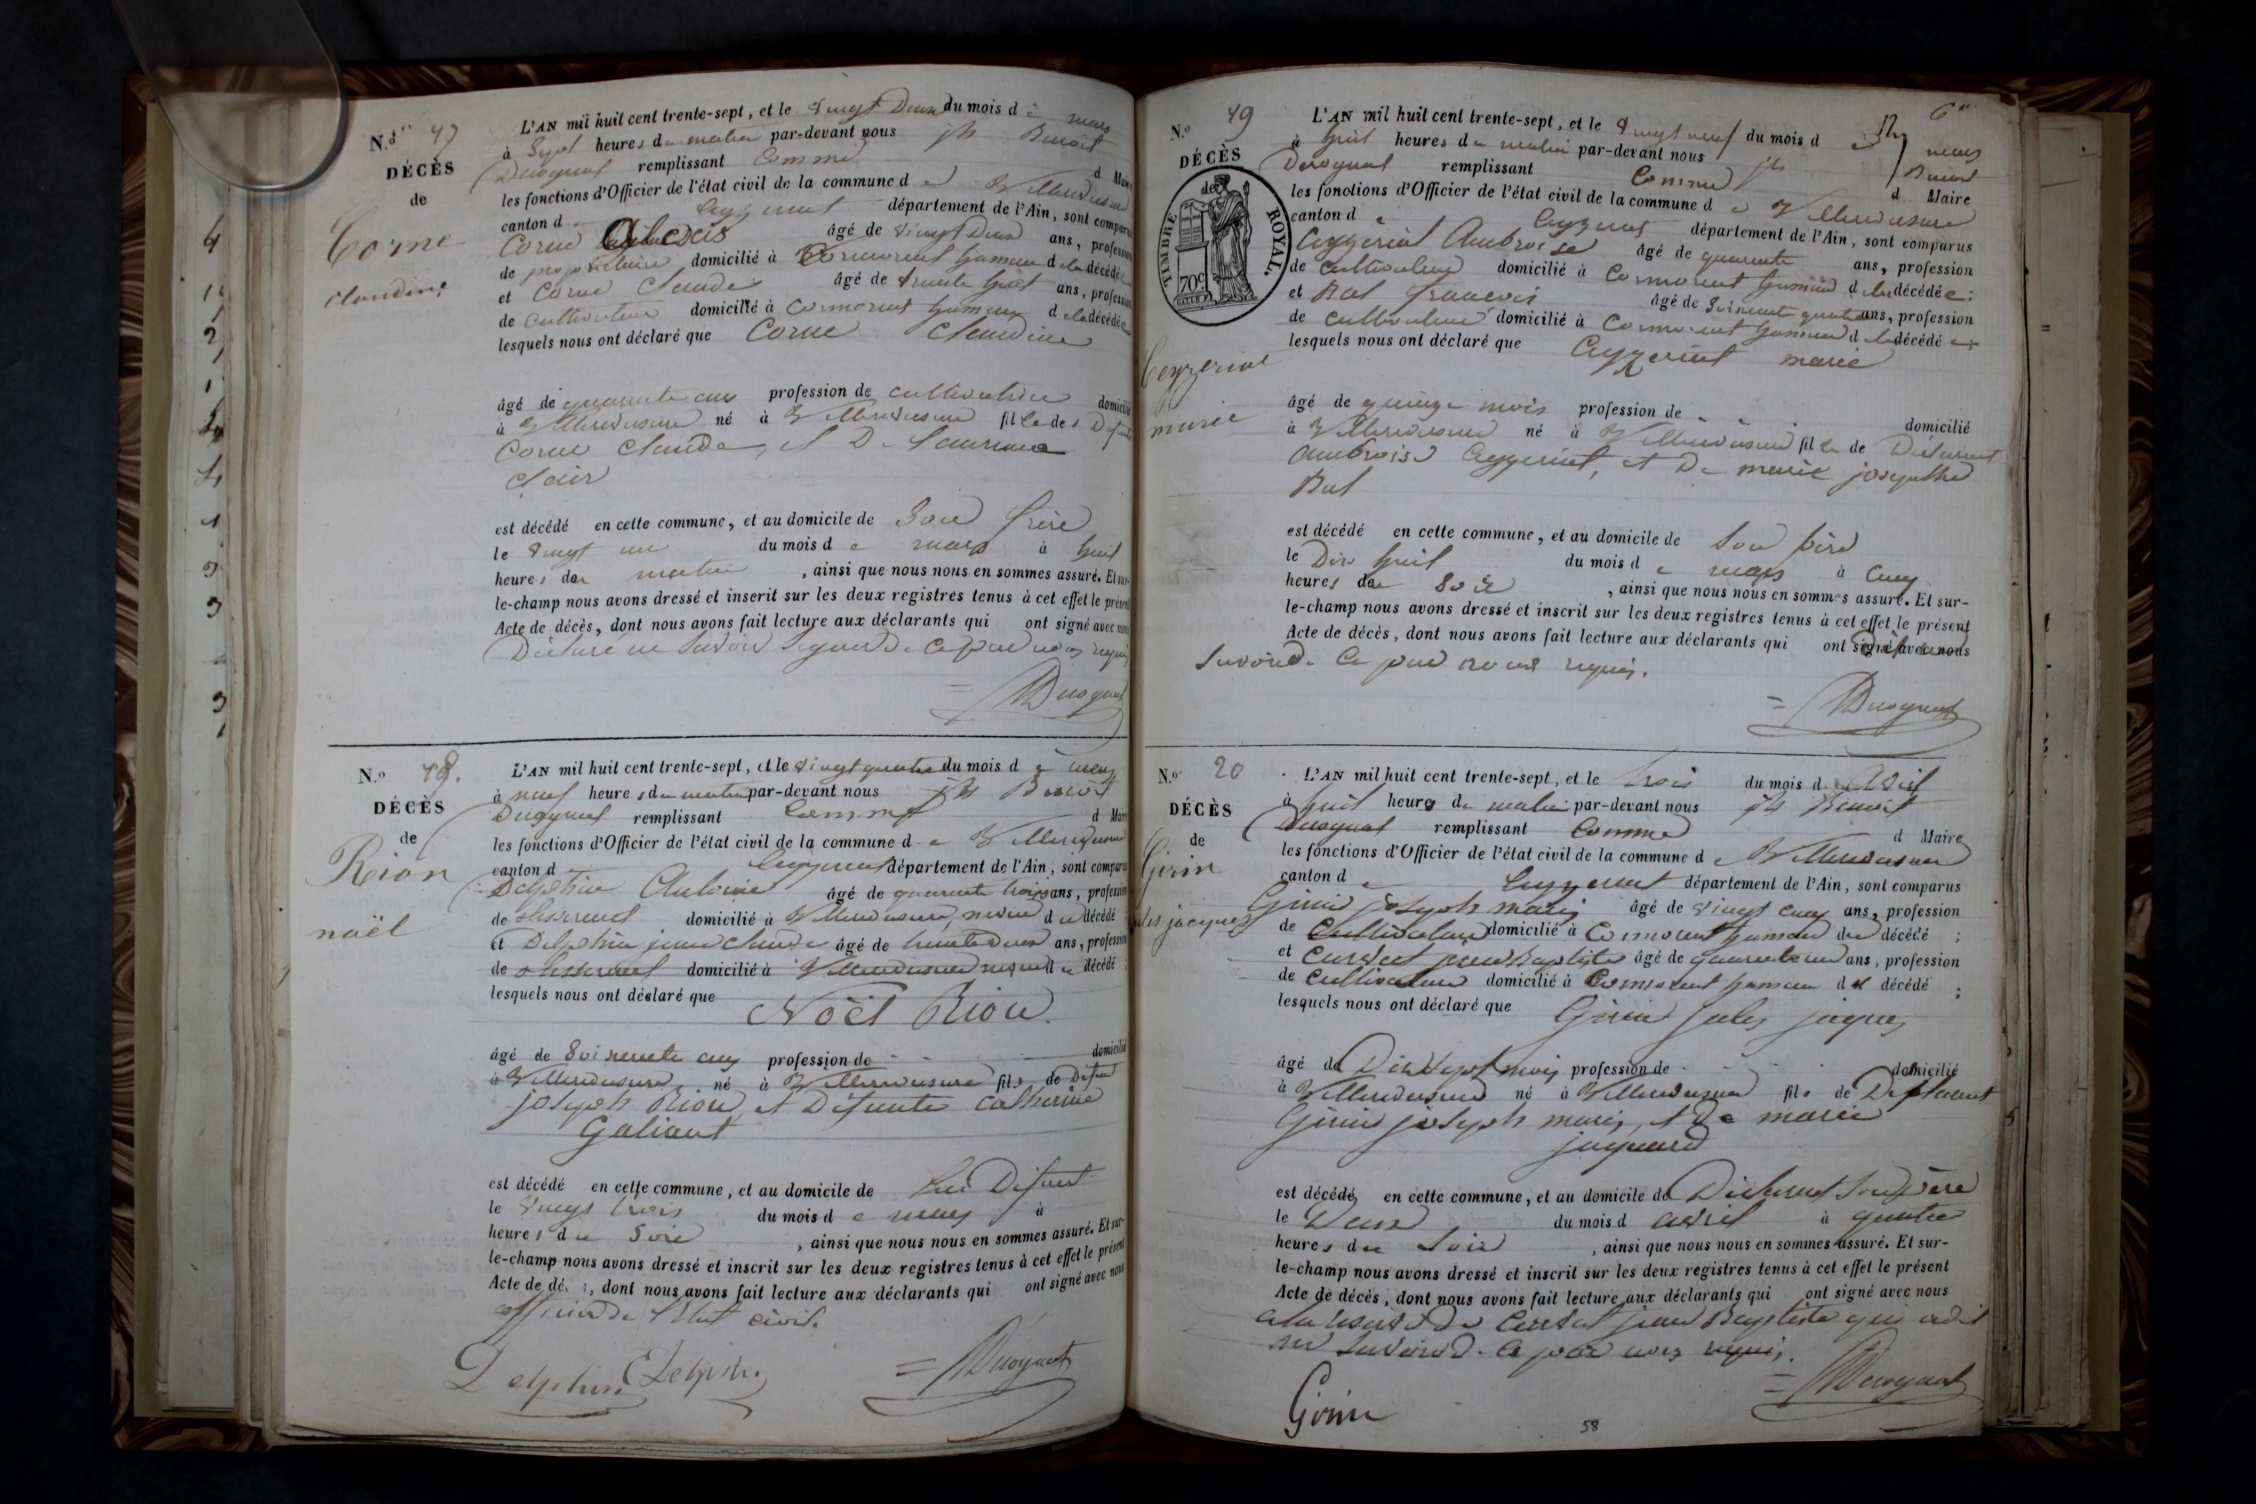 N.º 17
DÉCÈS
de
Corne
claudine
L'AN mil huit cent trente-sept, et le vingt Deux du mois de mars
à Sept heures du matin par-devant nous jh Benoit
Duroquat remplissant comme
d Maire
les fonctions d'Officier de l'état civil de la commune de Villereversure
canton de Ceyzeriat département de l'Ain, sont comparus
Corne Alexis âgé de vingt Deux ans, profession
de propriétaire domicilié à Cormorent hameau de la décédée
et Corne Claude âgé de trente huit ans, profession
de Cultivateur domicilié à Cormorent hameau de la décédée
lesquels nous ont déclaré que Corne Claudine
âgé de quarante ans profession de cultivatrice domicilié
à Villereversure né à Villereversure fille de Defunt
Corne Claude, et De Laurence
Clair
est décédé en cette commune, et au domicile de Son frère
le vingt un du mois de mars à huit
heures du matin, ainsi que nous nous en sommes assuré. Et sur-
le-champ nous avons dressé et inscrit sur les deux registres tenus à cet effet le présent
Acte de décès, dont nous avons fait lecture aux déclarants qui ont signé avec nous
Déclaré ne Savoir Signer De ce par nous requis
= Duroquat
N.º 18.
DÉCÈS
de
Rion
noël
L'AN mil huit cent trente-sept, et le vingt quatre du mois de mars
à neuf heures du matin par-devant nous jh Benoit
Duroquat remplissant comme
d Maire
les fonctions d'Officier de l'état civil de la commune de Villereversure
canton d Ceyzeriat département de l'Ain, sont comparus
Delphin Antoine âgé de quarante trois ans, profession
de tisserand domicilié à Villereversure, neveu du décédé
et Delphin jean claude âgé de trente deux ans, profession
de tisserand domicilié à Villereversure neveu du décédé
lesquels nous ont déclaré que
Noël Rion.
âgé de Soixante ans profession de - - domicilié
à Villereversure, né à Villereversure fils de Defunt
joseph Rion, et Défunte Catherine
Galiant
est décédé en cette commune, et au domicile de Lui Défunt
le vingt trois du mois de mars à
heures du Soir, ainsi que nous nous en sommes assuré. Et sur-
le-champ nous avons dressé et inscrit sur les deux registres tenus à cet effet le présent
Acte de décès, dont nous avons fait lecture aux déclarants qui ont signé avec nous
officier de l'Etat civil.
Delphin Delphin
= Duroquat
6
N.º 19
DÉCÈS
de
TIMBRE ROYAL.
70c
Ceyzeriat
marie
L'AN mil huit cent trente-sept, et le vingt neuf du mois de mars
à huit heures du matin par-devant nous jh Benoit
Duroquat remplissant comme
d Maire
les fonctions d'Officier de l'état civil de la commune de Villereversure
canton de Ceyzeriat département de l'Ain, sont comparus
Ceyzeriat Ambroise âgé de quarante ans, profession
de cultivateur domicilié à Cormorent hameau de la décédée;
et Rat françois âgé de Soixante quatre ans, profession
de cultivateur domicilié à Cormorent hameau de la décédée;
lesquels nous ont déclaré que Ceyzeriat marie
âgé de quinze mois profession de - - domicilié
à Villereversure né à Villereversure fille de Déclarant
Ambroise Ceyzeriat, et De marie josephe
Rat
est décédé en cette commune, et au domicile de Son père
le Dix huit du mois de mars à Cinq
heures du Soir, ainsi que nous nous en sommes assuré. Et sur-
le-champ nous avons dressé et inscrit sur les deux registres tenus à cet effet le présent
Acte de décès, dont nous avons fait lecture aux déclarants qui ont signé avec nous
Savoir De ce par nous requis.
= Duroquat
N.º 20
DÉCÈS
de
Girin
jules jacques
L'AN mil huit cent trente-sept, et le trois du mois d'Avril
à huit heures du matin par-devant nous jh Benoit
Duroquat remplissant comme
d Maire
les fonctions d'Officier de l'état civil de la commune de Villereversure
canton de Ceyzeriat département de l'Ain, sont comparus
Girin joseph marie âgé de vingt cinq ans, profession
de Cultivateur domicilié à Cormorent hameau du décédé;
et Curset jean Baptiste âgé de quarante un ans, profession
de Cultivateur domicilié à Cormorent hameau du décédé;
lesquels nous ont déclaré que Girin jules jacques
âgé de Dix Sept mois profession de - - domicilié
à Villereversure né à Villereversure fils de Déclarant
Girin joseph marie, et De marie
jaquard
est décédé, en cette commune, et au domicile de Déclarant Son père
le Deux du mois d avril à quatre
heures du Soir, ainsi que nous nous en sommes assuré. Et sur-
le-champ nous avons dressé et inscrit sur les deux registres tenus à cet effet le présent
Acte de décès, dont nous avons fait lecture aux déclarants qui ont signé avec nous
a la réserve De Curset jean Baptiste qui a dit
ne Savoir De ce par nous requis.
Girin
= Duroquat
58